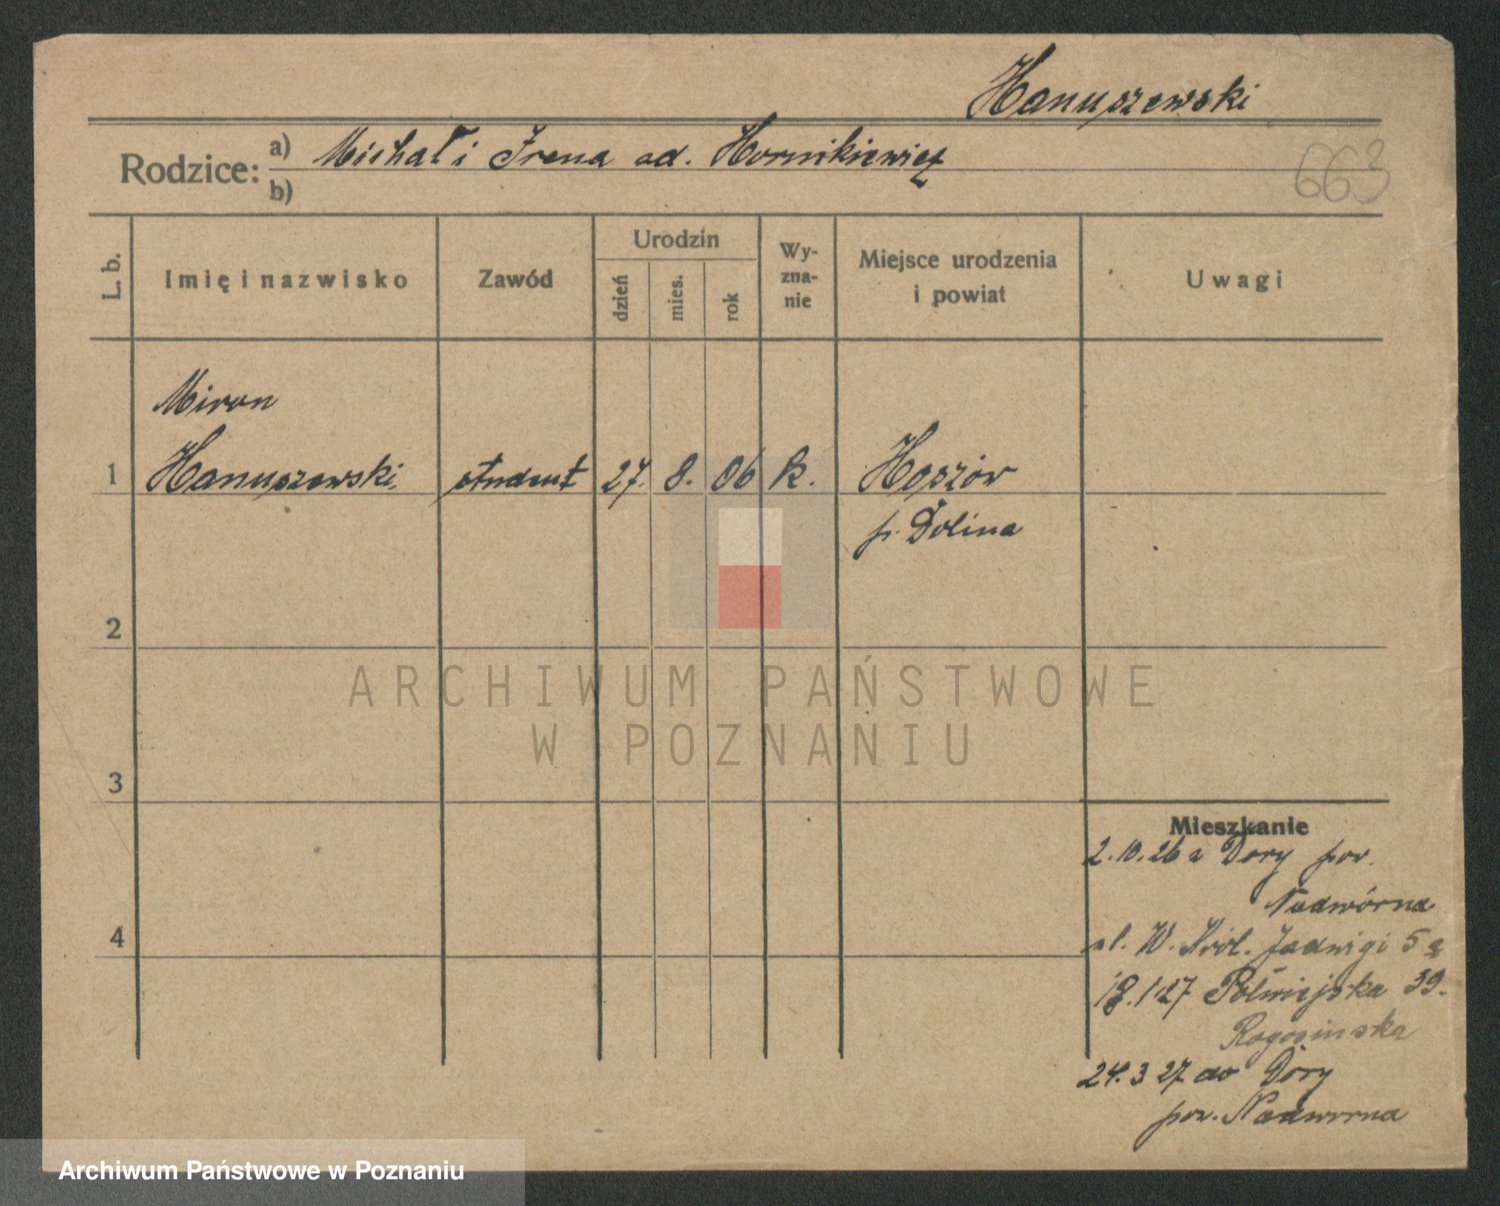 Hanuszewski
Rodzice: a) Michał i Irena od. Hornikiewicz
b)
663
L. b.
Imię i nazwisko
Zawód
Urodzin
dzień
mies.
rok
Wy-
zna-
nie
Miejsce urodzenia
i powiat
Uwagi
Miron
1 Hanuszewski student 27. 8. 06 k. Hoszów
p. Dolina
2
3
4
Mieszkanie
2.10.26 z Dory pow.
Nadwórna
ul. W. Król. Jadwigi 5
18.1.27 Półwiejska 39.
Rogozinska
24.3 27 do Dory
pow. Nadworna
ARCHIWUM PAŃSTWOWE
W POZNANIU
Archiwum Państwowe w Poznaniu